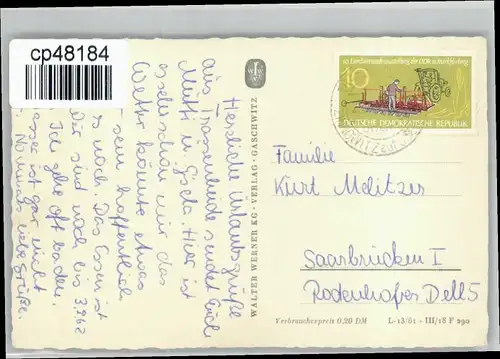 cp48184
Herzliche Urlaubsgrüße
aus Trassenheide sendet Euch
Mutti u. Gisela. Hier ist
es sehr schön nur das
Wetter könnte etwas
sein hoffentlich
es noch. Das Essen ist
Wir sind noch bis 3.9.62
Ich gehe oft baden.
Wasser ist gar nicht
Nochmals liebe Grüße.
WALTER WERNER KG · VERLAG · GASCHWITZ
10. Landwirtschaftsausstellung der DDR in Markkleeberg
10
DEUTSCHE DEMOKRATISCHE REPUBLIK
Familie
Kurt Melitzer
Saarbrücken I
Rodenhofer Dell 5
Verbraucherpreis 0,20 DM
L-15/61 - III/18 F 290